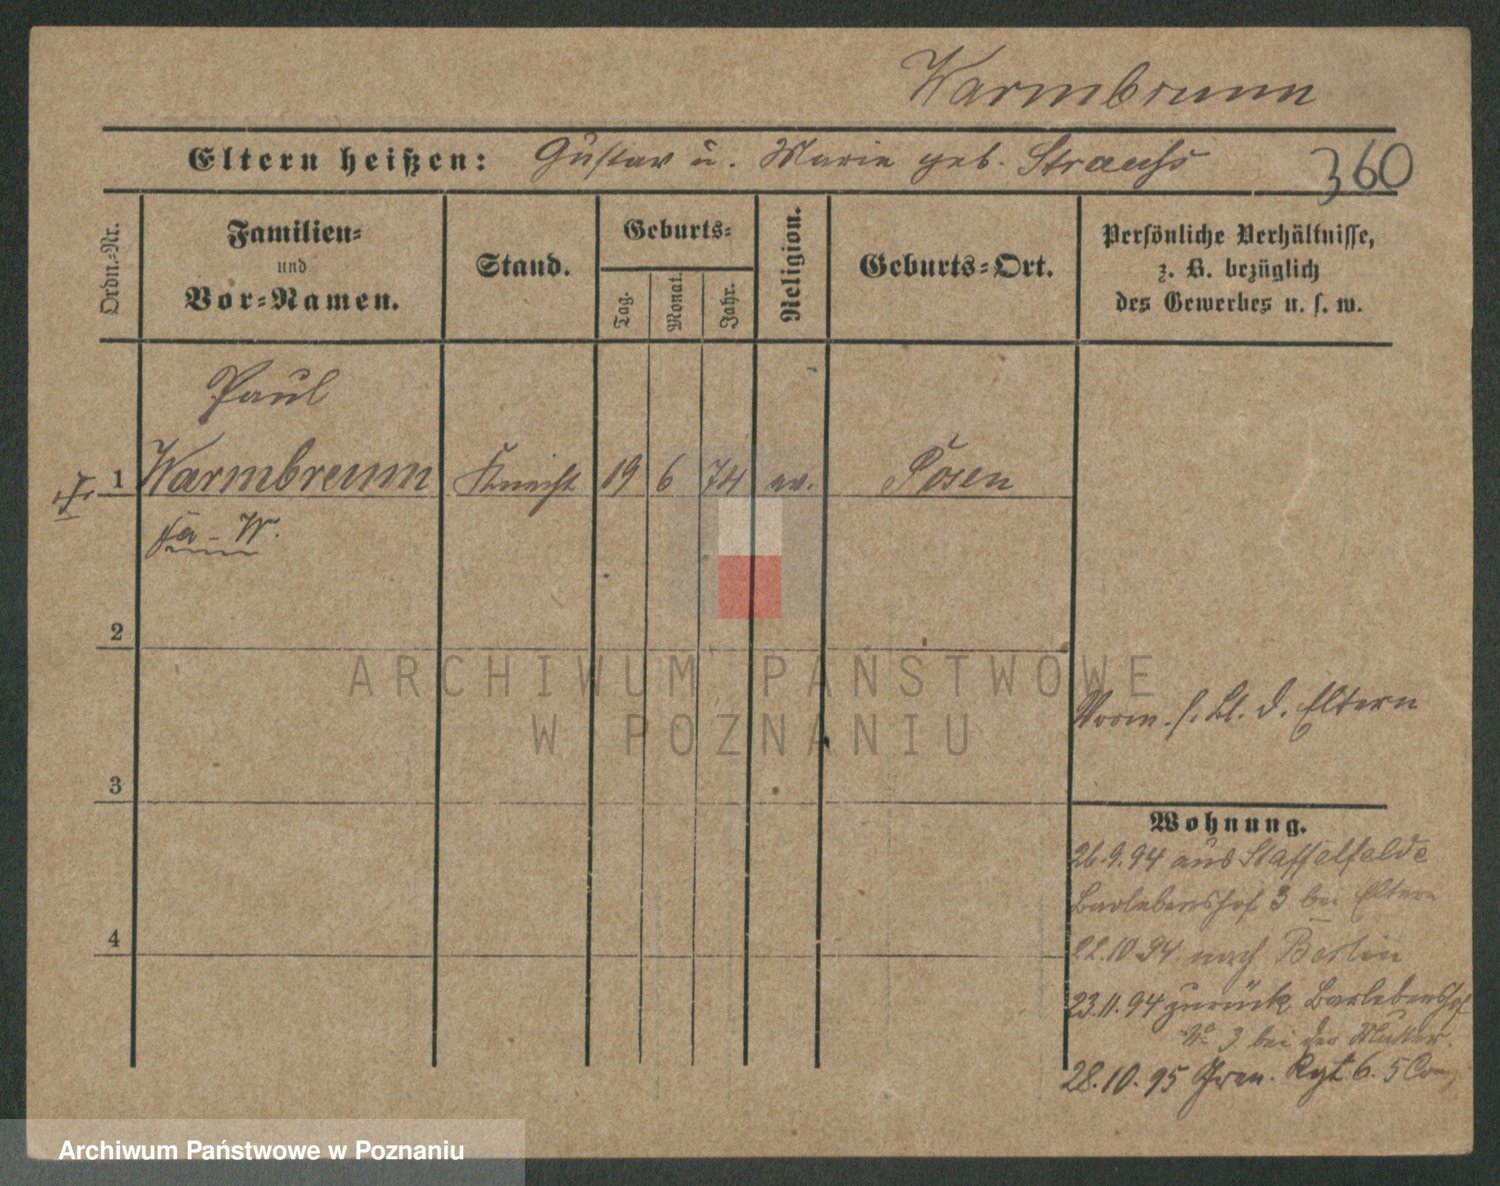 Warmbrunn
Eltern heißen: Gustav u. Marie geb. Strauhs
360
Ordn.-Nr.
Familien-
und
Vor-Namen.
Stand.
Geburts-
Tag.
Monat.
Jahr.
Religion.
Geburts-Ort.
Persönliche Verhältnisse,
z. B. bezüglich
des Gewerbes u. s. w.
Paul
1 Warmbrunn Knecht 19 6 74 ev. Posen
W.
2
ARCHIWUM PAŃSTWOWE
W POZNANIU
Vorm. s. Bl. d. Eltern
3
Wohnung.
26.9.94 aus Staffelfelde
Barlebenshof 3 bei Eltern
4
22.10.94 nach Berlin
23.11.94 zurück Barlebenshof
No 3 bei der Mutter.
28.10.95 Gren. Rgt. 6. 5 Comp.
Archiwum Państwowe w Poznaniu